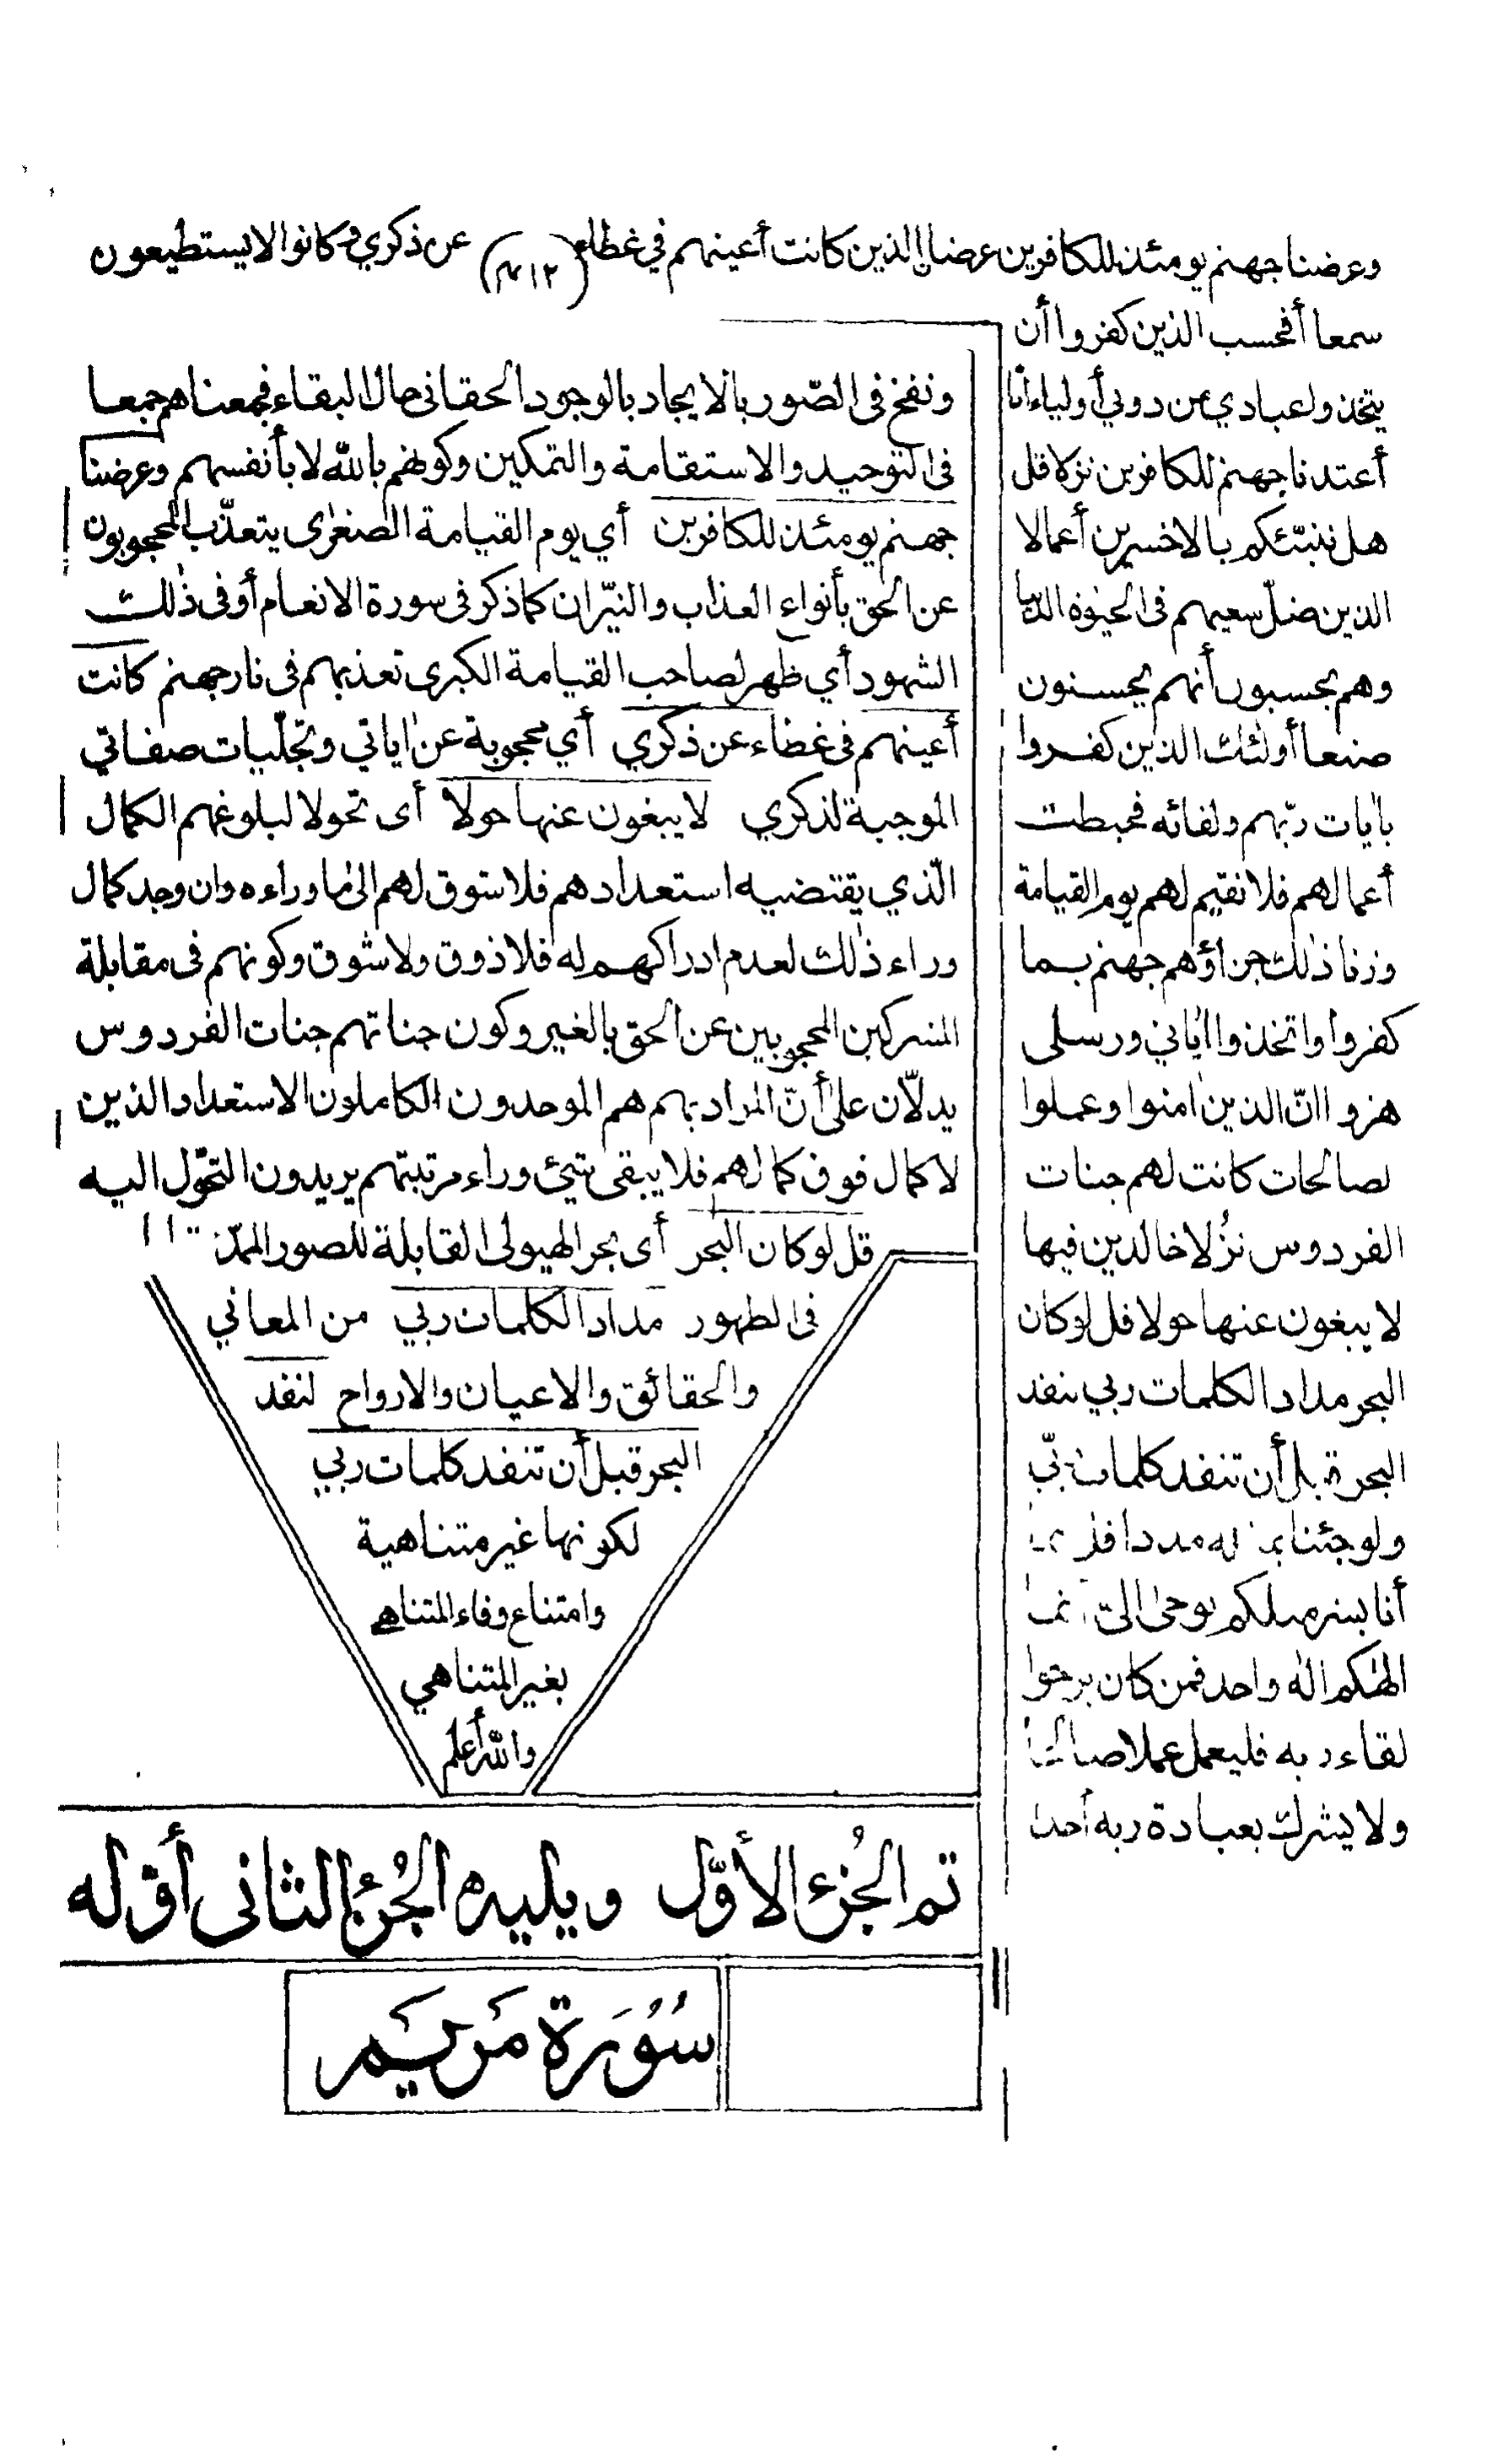 وعرضنا جهنم يومئذ للكافرين عرضا الذين كانت أعينهم في غطاء (٤١٢) عن ذكري وكانوا لا يستطيعون
سمعا أفحسب الذين كفروا أن
يتخذوا عبادي من دوني أولياء انا
أعتدنا جهنم للكافرين نزلا قل
هل ننبّئكم بالاخسرين أعمالا
الذين ضلّ سعيهم فى الحيوة الدنيا
وهم يحسبون أنهم يحسنون
صنعا أولئك الذين كفروا
بايات ربّهم ولقائه فحبطت
أعمالهم فلا نقيم لهم يوم القيامة
وزنا ذلك جزاؤهم جهنم بما
كفروا واتخذوا اياتي ورسلى
هزوا انّ الذين امنوا وعملوا
لصالحات كانت لهم جنات
الفردوس نزُلا خالدين فيها
لا يبغون عنها حولا قل لو كان
البحر مداد الكلمات ربي لنفد
البحر قبل أن تنفد كلمات ربّي
ولو جئنا بمثله مددا قل
أنا بشر مثلكم يوحى الىّ انما
الهكم اله واحد فمن كان يرجوا
لقاء ربه فليعمل عملا صالحا
ولا يشرك بعبادة ربه أحدا
ونفخ فى الصّور بالايجاد بالوجود الحقانى حال البقاء فجمعناهم جمعا
فى التوحيد والاستقامة والتمكين وكونهم بالله لا بأنفسهم وعرضنا
جهنم يومئذ للكافرين أي يوم القيامة الصغرى يتعذّب المحجوبون
عن الحق بأنواع العذاب والنيّران كما ذكر فى سورة الانعام أو فى ذلك
الشهود أي ظهر لصاحب القيامة الكبرى تعذبهم فى نار جهنم كانت
أعينهم فى غطاء عن ذكري أي محجوبة عن اياتي وتجلّيات صفاتي
الموجبة لذكري لا يبغون عنها حولا أى تحولا لبلوغهم الكمال
الّذي يقتضيه استعدادهم فلا شوق لهم الى ما وراءه وان وجد كمال
وراء ذلك لعدم ادراكهم له فلا ذوق ولا شوق وكونهم فى مقابلة
المشركين المحجوبين عن الحق بالغير وكون جناتهم جنات الفردوس
يدلّان على أنّ المراد بهم هم الموحدون الكاملون الاستعداد الذين
لا كمال فوق كمالهم فلا يبقى شيئ وراء مرتبتهم يريدون التحّول اليه
قل لو كان البحر أى بحر الهيولى القابلة للصور الممدّة
فى الظهور مداد الكلمات ربي من المعاني
والحقائق والاعيان والارواح لنفد
البحر قبل أن تنفد كلمات ربي
لكونها غير متناهية
وامتناع وفاء المتناهى
بغير المتناهي
والله أعلم
تم الجُزء الأوّل ويليه الجُزء الثانى أوّله
سُوُرَة مَريَم